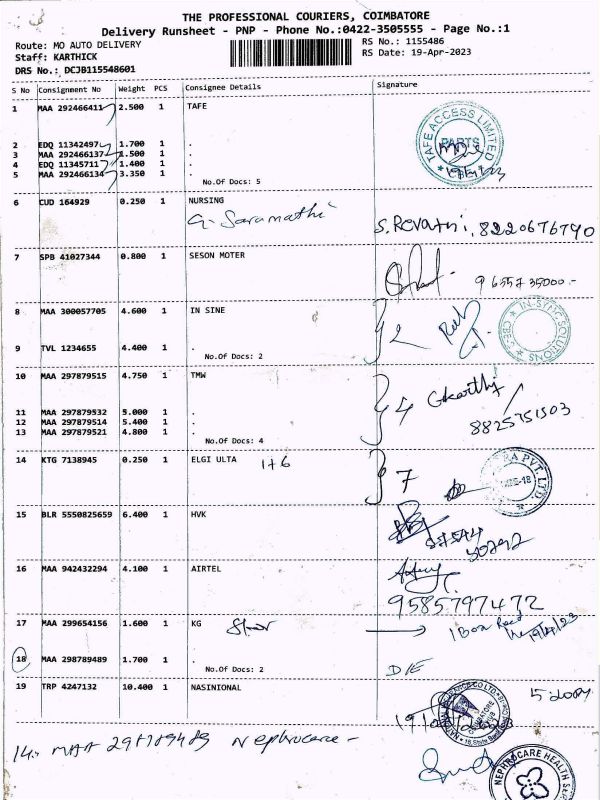 THE PROFESSIONAL COURIERS, COIMBATORE
Delivery Runsheet - PNP - Phone No.:0422-3505555 - Page No.:1
Route: MO AUTO DELIVERY RS No.: 1155486
Staff: KARTHICK RS Date: 19-Apr-2023
DRS No.: DCJB115548601
S No Consignment No Weight PCS Consignee Details Signature
1 MAA 292466411 2.500 1 TAFE
TAFE ACCESS LIMITED
PARTS
2 EDQ 11342497 1.700 1 .
3 MAA 292466137 1.500 1 .
4 EDQ 11345711 1.400 1 .
5 MAA 292466134 3.350 1 .
No.Of Docs: 5
6 CUD 164929 0.250 1 NURSING
G. Saramathi S. Revathi, 8220676790
7 SPB 41027344 0.800 1 SESON MOTER
9655735000-
8 MAA 300057705 4.600 1 IN SINE
2
IN-SYNC SOLUTIONS
CBE
9 TVL 1234655 4.400 1 .
No.Of Docs: 2
10 MAA 297879515 4.750 1 TMW
4 Gkarthi
8825751503
11 MAA 297879532 5.000 1 .
12 MAA 297879514 5.400 1 .
13 MAA 297879521 4.800 1 .
No.Of Docs: 4
14 KTG 7138945 0.250 1 ELGI ULTA 1+6 7
PVT. LTD.
15 BLR 5550825659 6.400 1 HVK
16 MAA 942432294 4.100 1 AIRTEL
9585797472
17 MAA 299654156 1.600 1 KG
1 Box Recd
19/4/23
18 MAA 298789489 1.700 1 .
No.Of Docs: 2 D/E
19 TRP 4247132 10.400 1 NASINIONAL
14:- MAA 298789489 Nephrocare -
NEPHROCARE HEALTH